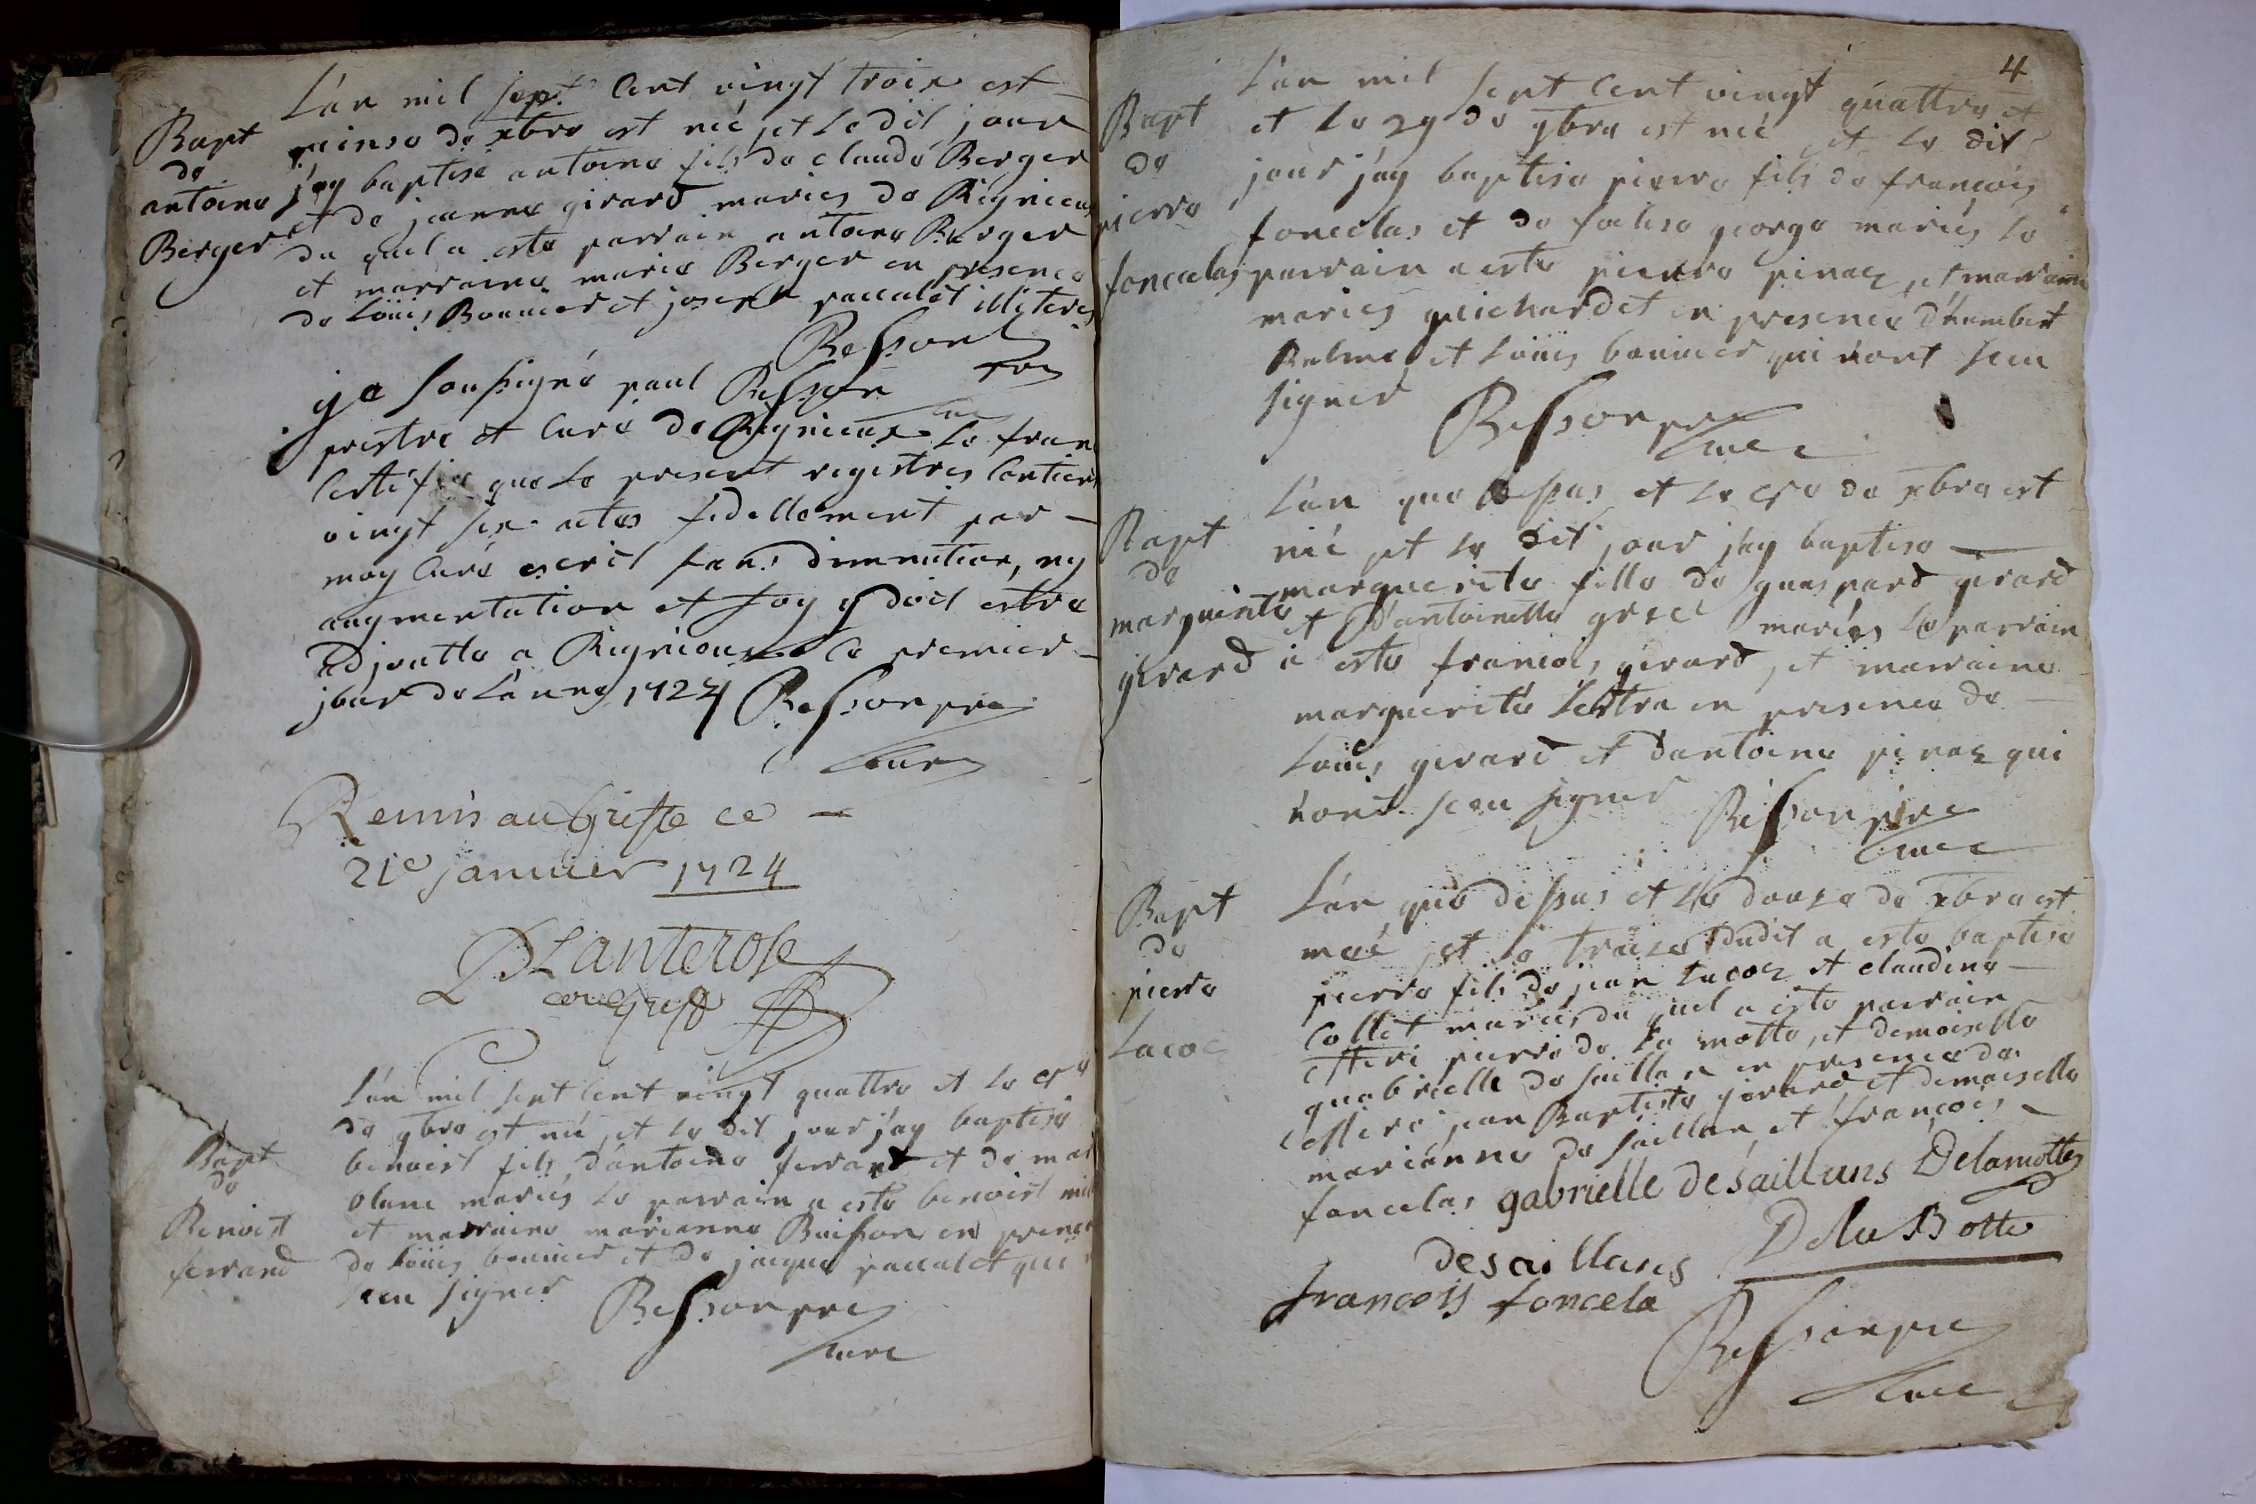 L'an mil sept Cent vingt trois est
Bapt
de
antoine
Berger
quinse de xbre est né, et le dit jour
j'ay baptisé antoine fils de claude Berger
et de jeanne girard maries de Rignieux
du quel a esté parrain antoine Berger
et marraine marie Berger en presence
de Loüis Bonnier et joseph paccalet illiteres
Besson
je soussigné paul Besson
prestre et Curé de Rignieux le franc
Certifie que le present registres Contient
vingt six actes fidellement par
moy Curé escrit sans diminution, ny
augmentation et foy y doit estre
adjoutte a Rignieux le premier
jour de L'anné 1724 Besson pre
Curé
Remis au Greffe ce
21e janvier 1724
DLanterose
L'an mil sept Cent vingt quattre et le
Bapt
de
Benoist
ferrand
de 9bre est né, et le dit jour j'ay baptisé
benoist fils d'antoine ferrand et de
maries le parrain a esté benoist
et marraine marianne Buisson en
de Loüis bonnier et de jacques paccalet qui
sceu signer
Besson pre
curé
4
L'an mil sept cent vingt quattre et
Bapt
de
pierre
foncelas
et le 29 de 9bre est né et le dit
jour j'ay baptisé pierre fils de françois
foncelas et de felise george mariés le
parrain a esté pierre pinaz, et marraine
maries guichardet en presence d'humbert
et Loüis bonnier qui n'ont sceu
signer
Besson pre
curé
Bapt
de
marguerite
girard
L'an que dessus et le de xbre est
né et le dit jour j'ay baptisé
marguerite fille de guaspard girard
et d'antoinette maries le parrain
a esté françois girard, et marraine
marguerite en presence de
Loüis girard et d'antoine pinaz qui
n'ont sceu signer
Besson pre
curé
Bapt
de
pierre
Lacoz
L'an que dessus et le douze de xbre est
né et le treize dudit a esté baptisé
pierre fils de jean Lacoz et claudine
Collet maries du quel a esté parrain
pierre de La motte, et demoiselle
guabrielle de saillan en presence de
jean Baptiste girard et demoiselle
marianne de saillan, et françois
foncelas gabrielle désaillans Delamotte
desaillans
francois foncela
Besson pre
curé